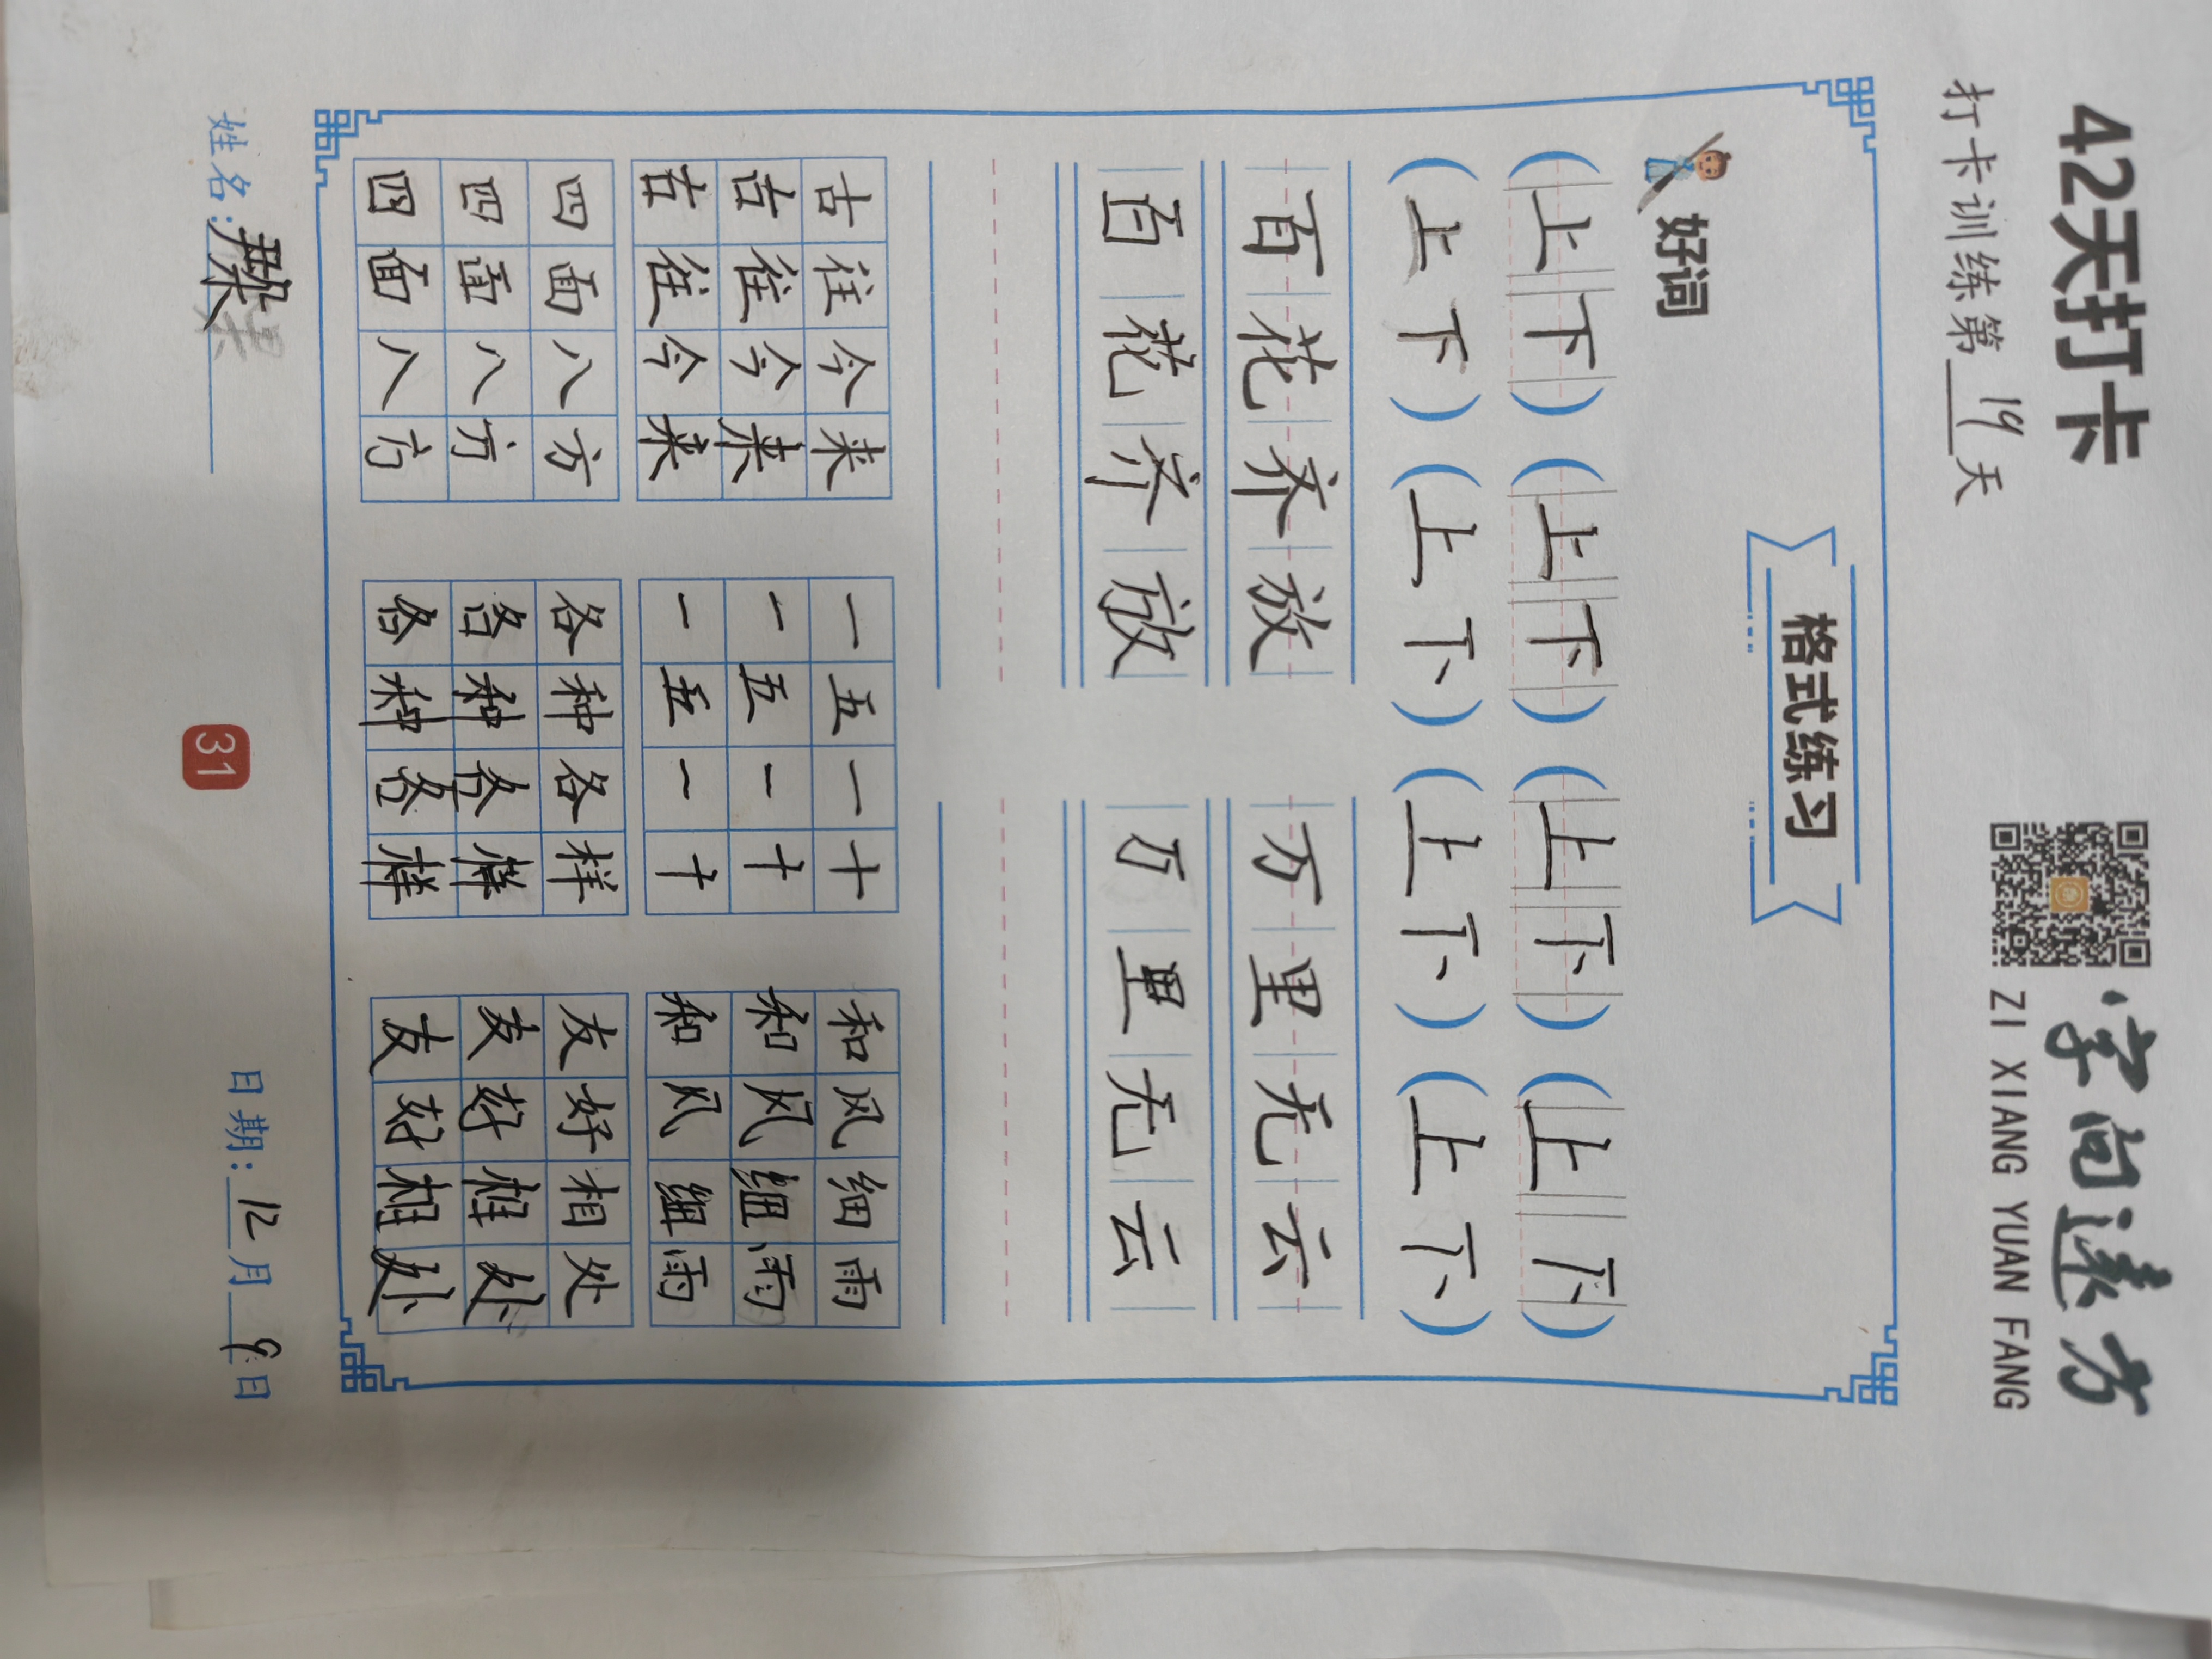 42天打卡
字向遠方
打卡训练第19天
ZI XIANG YUAN FANG
格式练习
好词
(上下) (上下) (上下) (上下)
(上下) (上下) (上下) (上下)
百花齐放 万里无云
百花齐放 万里无云
古往今来 一五一十 和风细雨
古往今来 一五一十 和风细雨
古往今来 一五一十 和风细雨
四面八方 各种各样 友好相处
四面八方 各种各样 友好相处
四面八方 各种各样 友好相处
姓名: 31 日期:12月9日